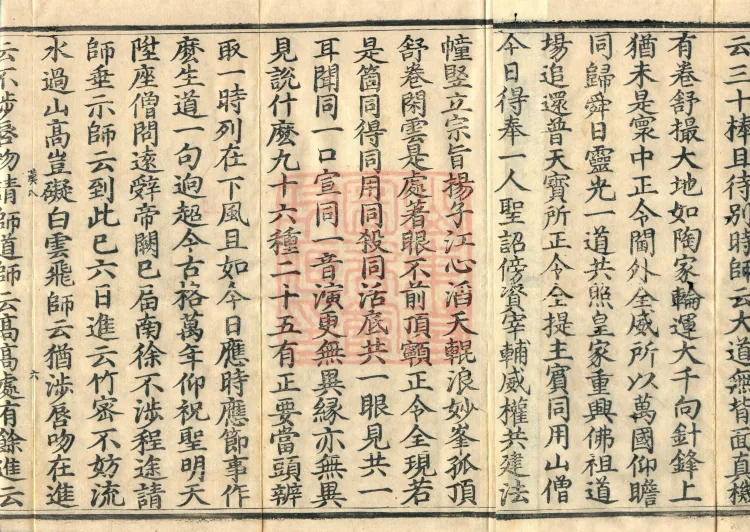 云三十棒且待別時師云大道無背面真機
有卷舒撮大地如陶家輪運大千向針鋒上
猶未是寰中正令閫外全威所以萬國仰瞻
同歸舜日靈光一道共照皇家重興佛祖道
場追還普天寳所正令全提主賓同用山僧
今日得奉一人聖詔傍資宰輔威權共建法
幢竪立宗旨揚子江心滔天輥浪妙峯孤頂
舒卷閑雲是處著眼不前頂𩕳正令全現若
是箇同得同用同殺同活底共一眼見共一
耳聞同一口宣同一音演更無異緣亦無異
見說什麽九十六種二十五有正要當頭辨
取一時列在下風且如今日應時應節事作
麽生道一句逈超今古格萬年仰祝聖明天
陞座僧問遠辭帝闕已屆南徐不涉程途請
師垂示師云到此已六日進云竹密不妨流
水過山髙豈礙白雲飛師云猶涉脣吻在進
云不涉脣吻請師道師云髙髙處有餘進云
六